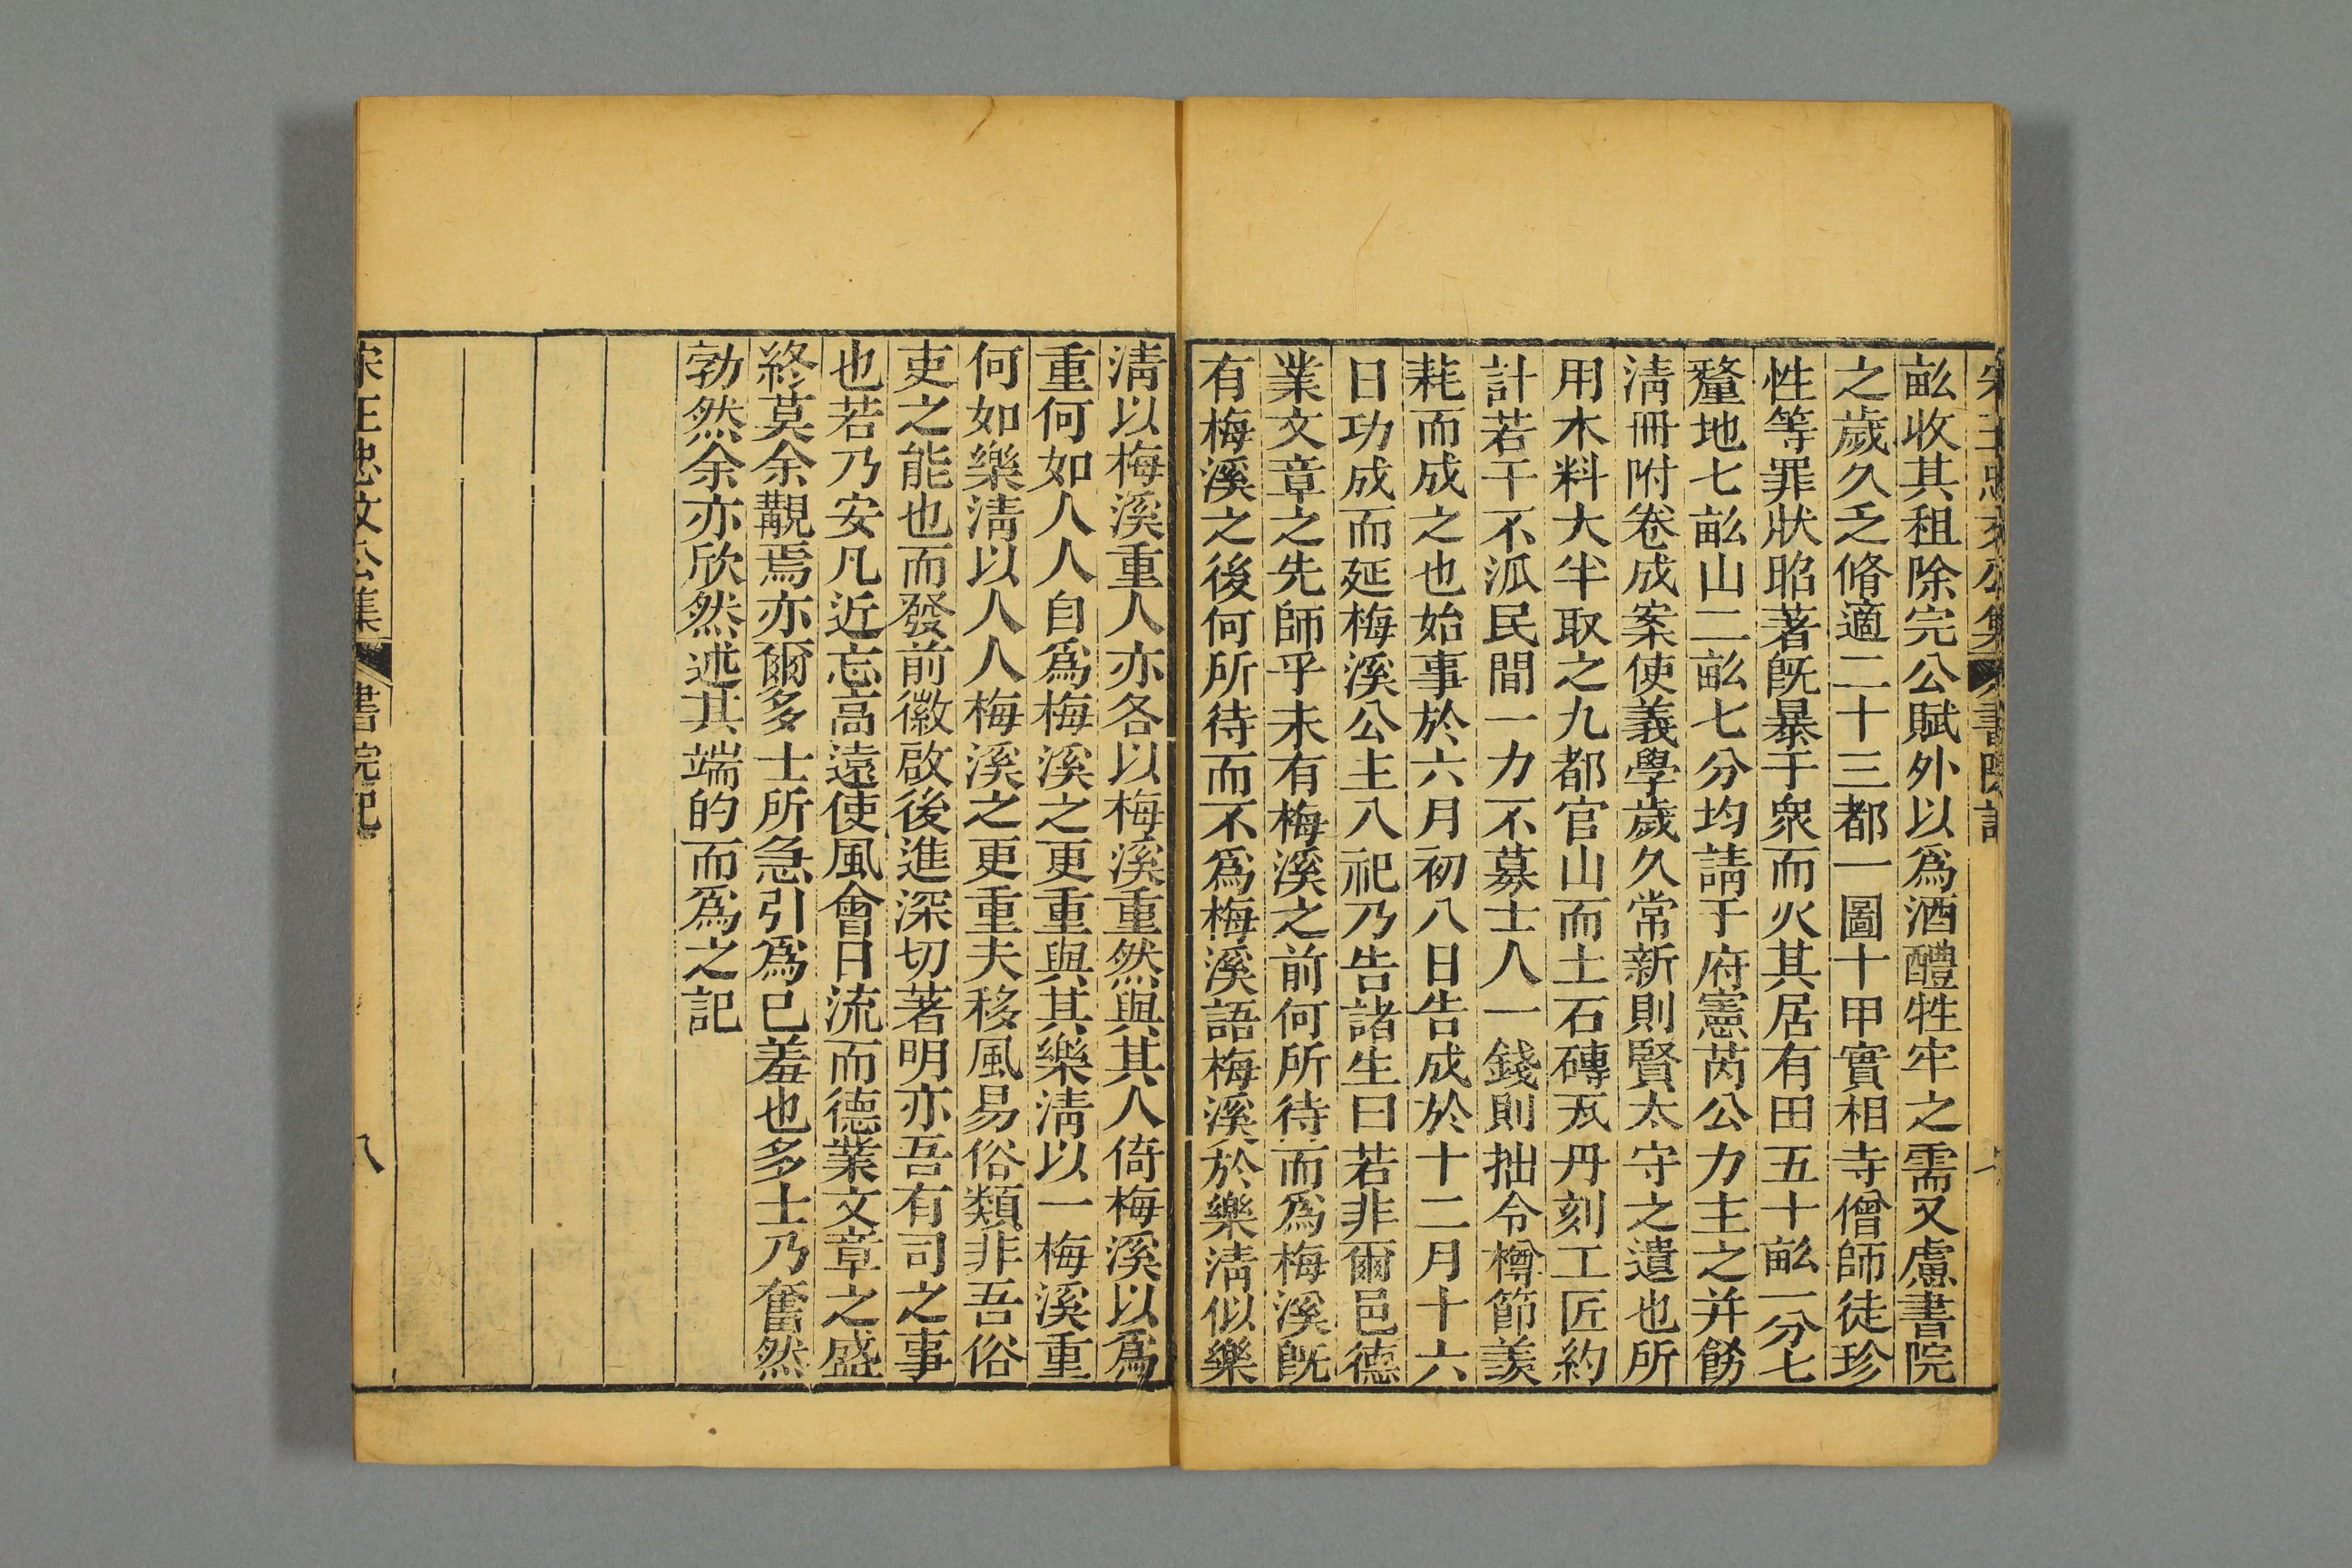 宋王忠文公集 書院記
畝收其租除完公賦外以爲酒醴牲牢之需又慮書院
之歲久乏脩適二十三都一圖十甲實相寺僧師徒珍
性等罪狀昭著旣暴于衆而火其居有田五十畝一分七
釐地七畝山二畝七分均請于府憲芮公力主之并餝
淸冊附卷成案使義學歲久常新則賢太守之遺也所
用木料大半取之九都官山而土石磚瓦丹刻工匠約
計若干不泒民間一力不募士人一錢則拙令樽節羨
耗而成之也始事於六月初八日告成於十二月十六
日功成而延梅溪公主入祀乃告諸生曰若非爾邑德
業文章之先師乎未有梅溪之前何所待而爲梅溪旣
有梅溪之後何所待而不爲梅溪語梅溪於樂淸似樂
淸以梅溪重人亦各以梅溪重然與其人倚梅溪以爲
重何如人人自爲梅溪之更重與其樂淸以一梅溪重
何如樂淸以人人梅溪之更重夫移風易俗類非吾俗
吏之能也而發前徽啟後進深切著明亦吾有司之事
也若乃安凡近忘高遠使風會日流而德業文章之盛
終莫余覯焉亦爾多士所急引爲已羞也多士乃奮然
勃然余亦欣然述其端的而爲之記
宋王忠文公集 書院記 八